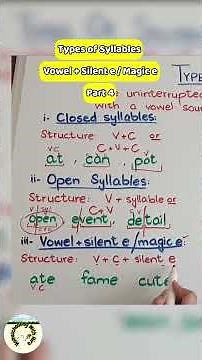 Types of Syllables
Vowel + Silent e / Magic e
Part 4
TYPE
uninterrupted
with a vowel sou
i- Closed syllables:
Structure: V+C or
C+V+C
V C
at, can, pot
ii- Open Syllables:
Structure: V + syllable or
C+V
open, event, detail
iii- Vowel+silent e/magic e
Structure: V + C + silent e
ate fame cute
V C